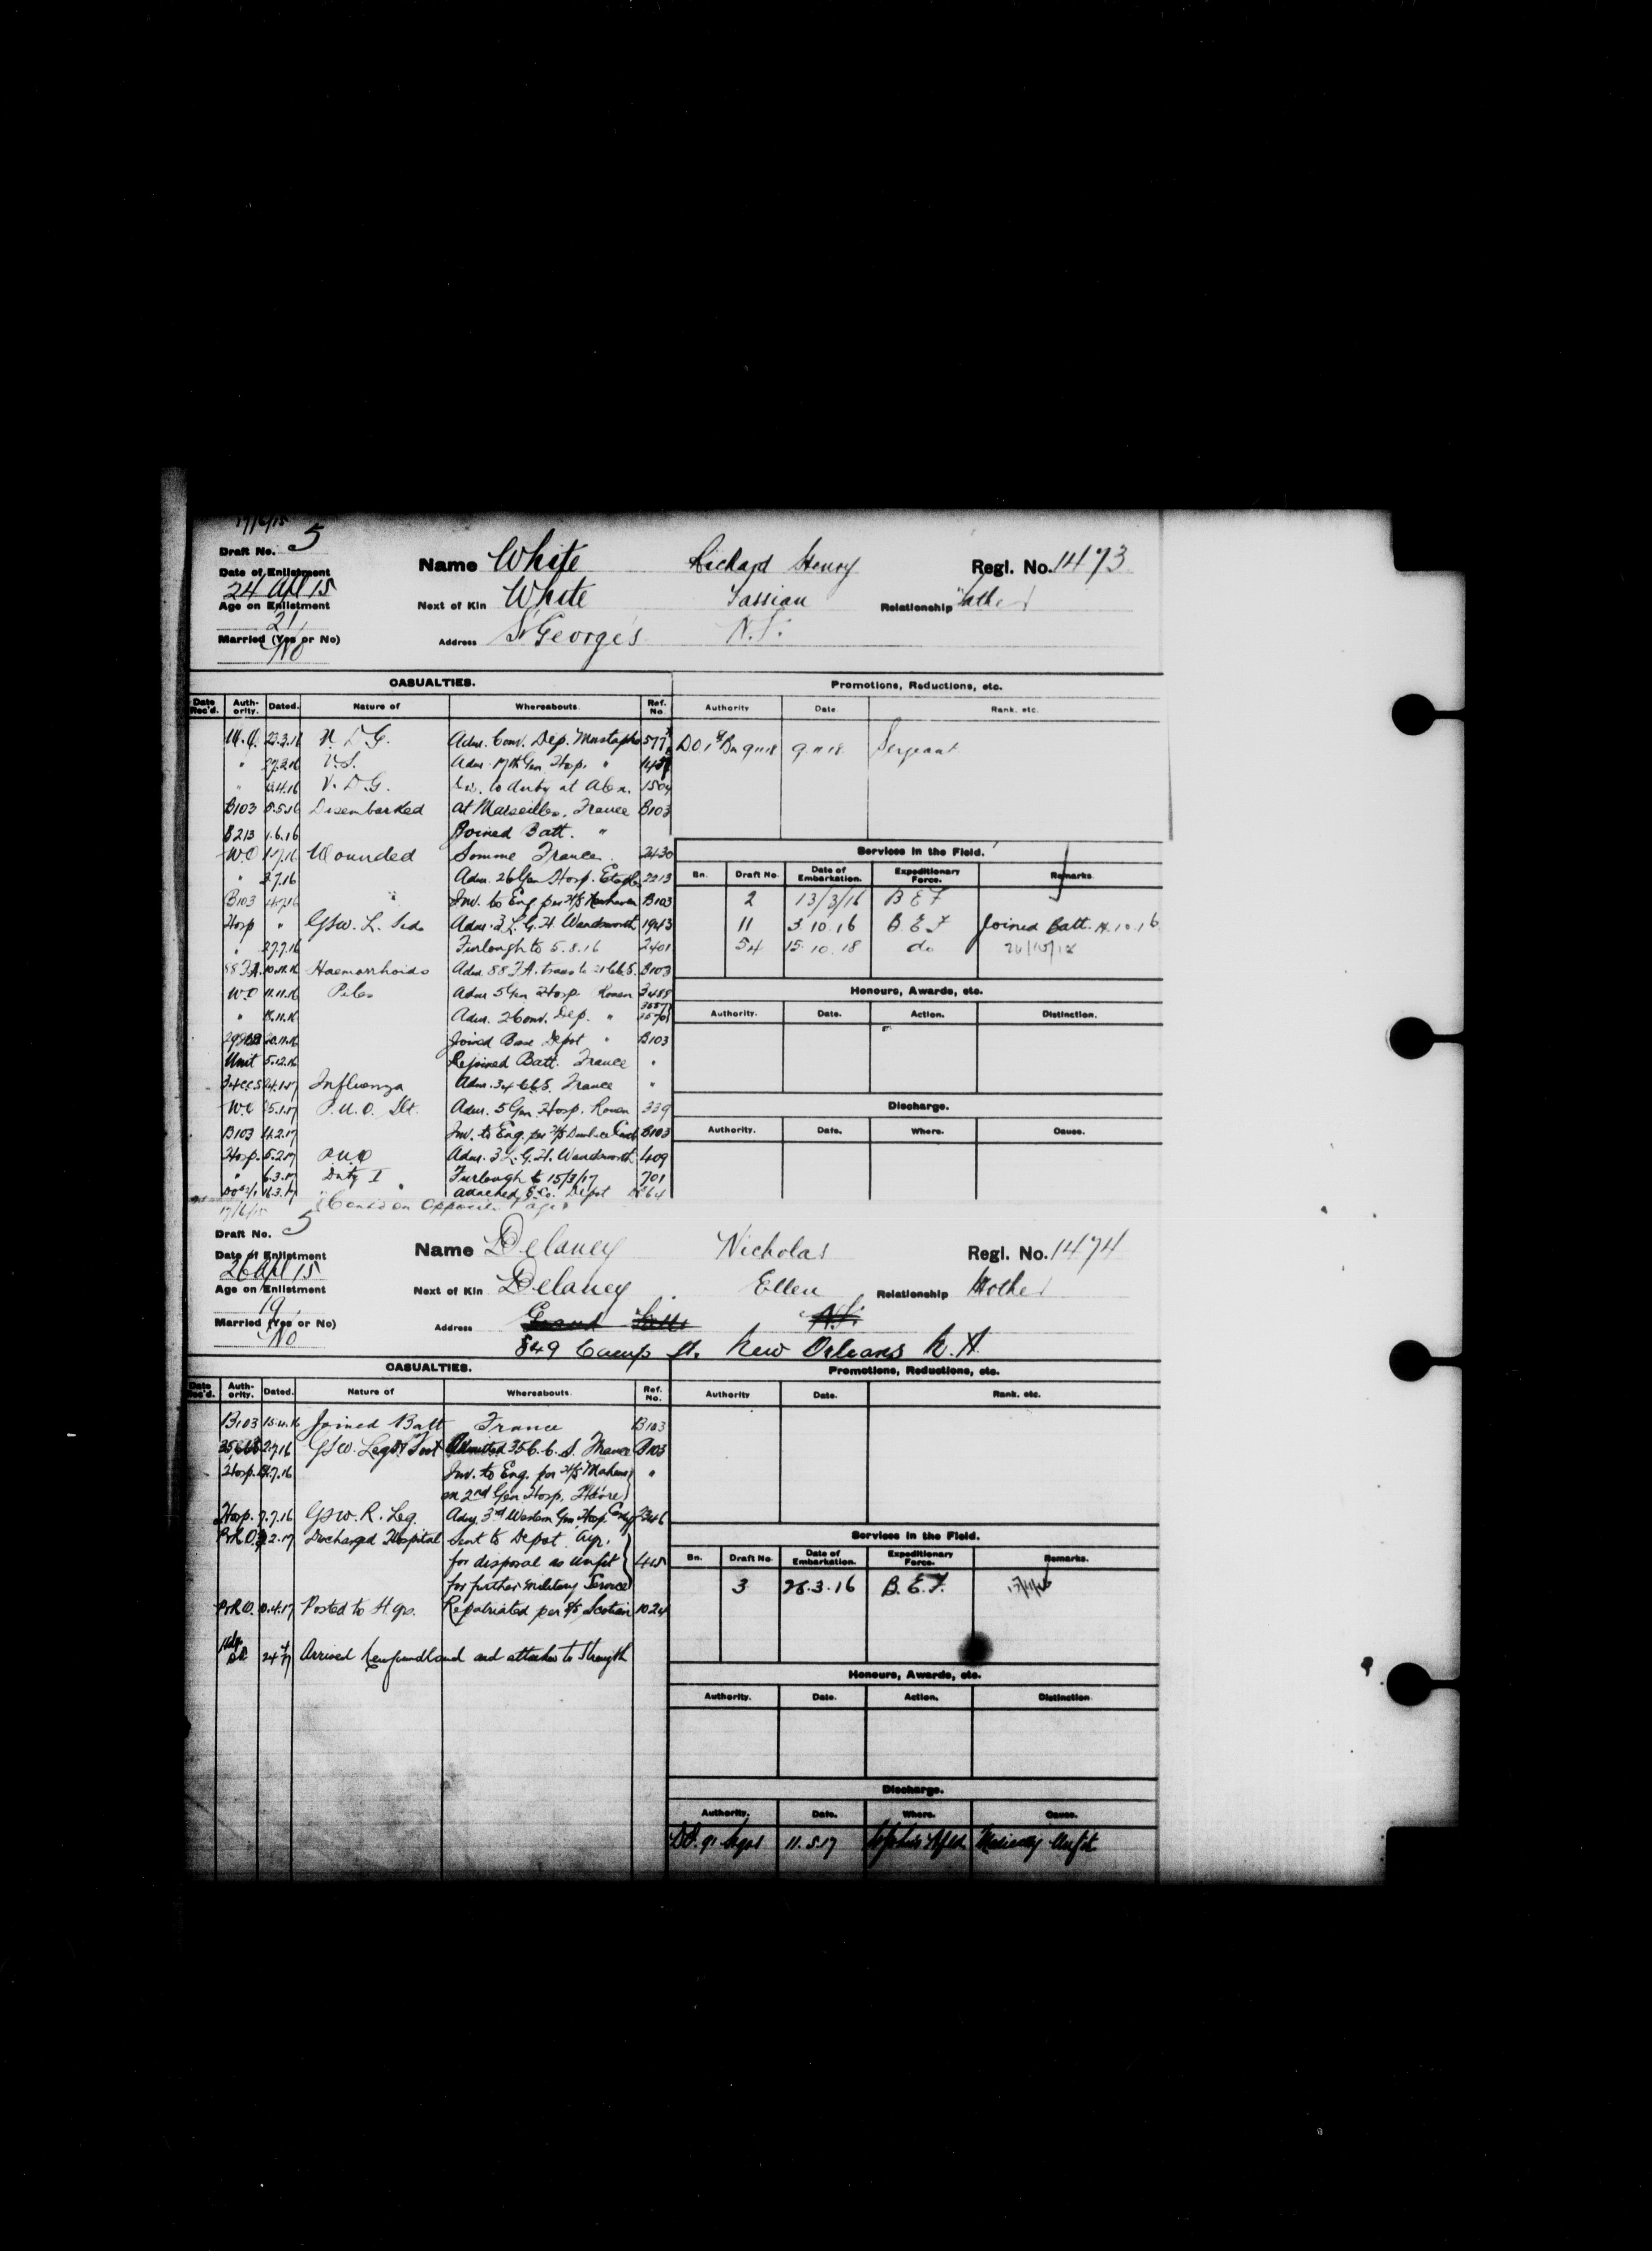 17/6/15
Draft No. 5
Name White Richard Henry Regl. No. 1473
Date of Enlistment
24 Apl 15
Next of Kin White Tassian Relationship Father
Age on Enlistment
21
Address St George's N.F.
Married (Yes or No)
No
CASUALTIES. Promotions, Reductions, etc.
Date Rec'd. Authority. Dated. Nature of Whereabouts. Ref. No. Authority Date Rank, etc.
23.3.16 V.D.G. Adm. Conv. Dep. Mustapha 577 DO 1st Bn 9 11 18 9 11 18 Sergeant
" 27.3.16 V.S. Adm. 17th Gen. Hosp. "
" V.D.G. to duty at Alex. 1504
B103 5.5.16 Disembarked at Marseilles, France B103
B213 1.6.16 Joined Batt. "
W.O 1.7.16 Wounded Somme France 2430
" 2.7.16 Adm. 26 Gen Hosp. Etaples 2213
B103 4.7.16 " Inv. to Eng per H/S Newhaven B103
Hosp " GSW. L. Side Adm. 3 L.G.H. Wandsworth 1943
" 27.7.16 Furlough to 5.8.16 2401
88 F.A. 10.11.16 Haemorrhoids Adm. 88 F.A. trans to 21 C.C.S. B103
W.O 11.11.16 Piles Adm 5 Gen Hosp. Rouen 3485
" 18.11.16 Adm. 2 Conv. Dep. "
20.11.16 Joined Base Depot " B103
Unit 5.12.16 Rejoined Batt. France "
34 CCS 24.1.17 Influenza Adm. 34 C.C.S. France "
W.O 25.1.17 P.U.O. Slt. Adm. 5 Gen. Hosp. Rouen 339
B103 4.2.17 Inv. to Eng. per H/S B103
Hosp. 5.2.17 P.U.O Adm. 3 L.G.H. Wandsworth 409
" 6.3.17 Duty I Furlough to 15/3/17 701
16.3.17 Attached, G. Co. Depot
Cont'd on Opposite Page
Services in the Field.
Bn. Draft No. Date of Embarkation. Expeditionary Force. Remarks.
2 13/3/16 B E F
11 3.10.16 B.E.F Joined Batt. 14.10.16
54 15.10.18 do
Honours, Awards, etc.
Authority. Date. Action. Distinction.
Discharge.
Authority. Date. Where. Cause.
17/6/15
Draft No. 5
Name Delaney Nicholas Regl. No. 1474
Date of Enlistment
26 Apl 15
Next of Kin Delaney Ellen Relationship Mother
Age on Enlistment
19
Address Grand Falls N.F.
Married (Yes or No)
No
849 Camp St. New Orleans
CASUALTIES. Promotions, Reductions, etc.
Date Rec'd. Authority. Dated. Nature of Whereabouts. Ref. No. Authority Date. Rank, etc.
B103 15.4.16 Joined Batt France B103
2.7.16 GSW. Leg & Foot Admitted 35 C.C.S. France B103
Hosp. 7.16 Inv. to Eng. per H/S Maheno
on 2nd Gen Hosp. Havre "
Hosp. 7.7.16 GSW R. Leg. Adm. 3rd Western Gen Hosp. 2346
P&R.O. 2.17 Discharged Hospital Sent to Depot Ayr.
for disposal as Unfit 415
for further Military Service
P&R.O. 10.4.17 Posted to H.qrs. Repatriated per S/S Scotian 1024
24.4.17 Arrived Newfoundland and attached to Strength
Services in the Field.
Bn. Draft No. Date of Embarkation. Expeditionary Force. Remarks.
3 28.3.16 B.E.F.
Honours, Awards, etc.
Authority. Date. Action. Distinction.
Discharge.
Authority. Date. Where. Cause.
11.5.17 St John's Nfld. Medically Unfit